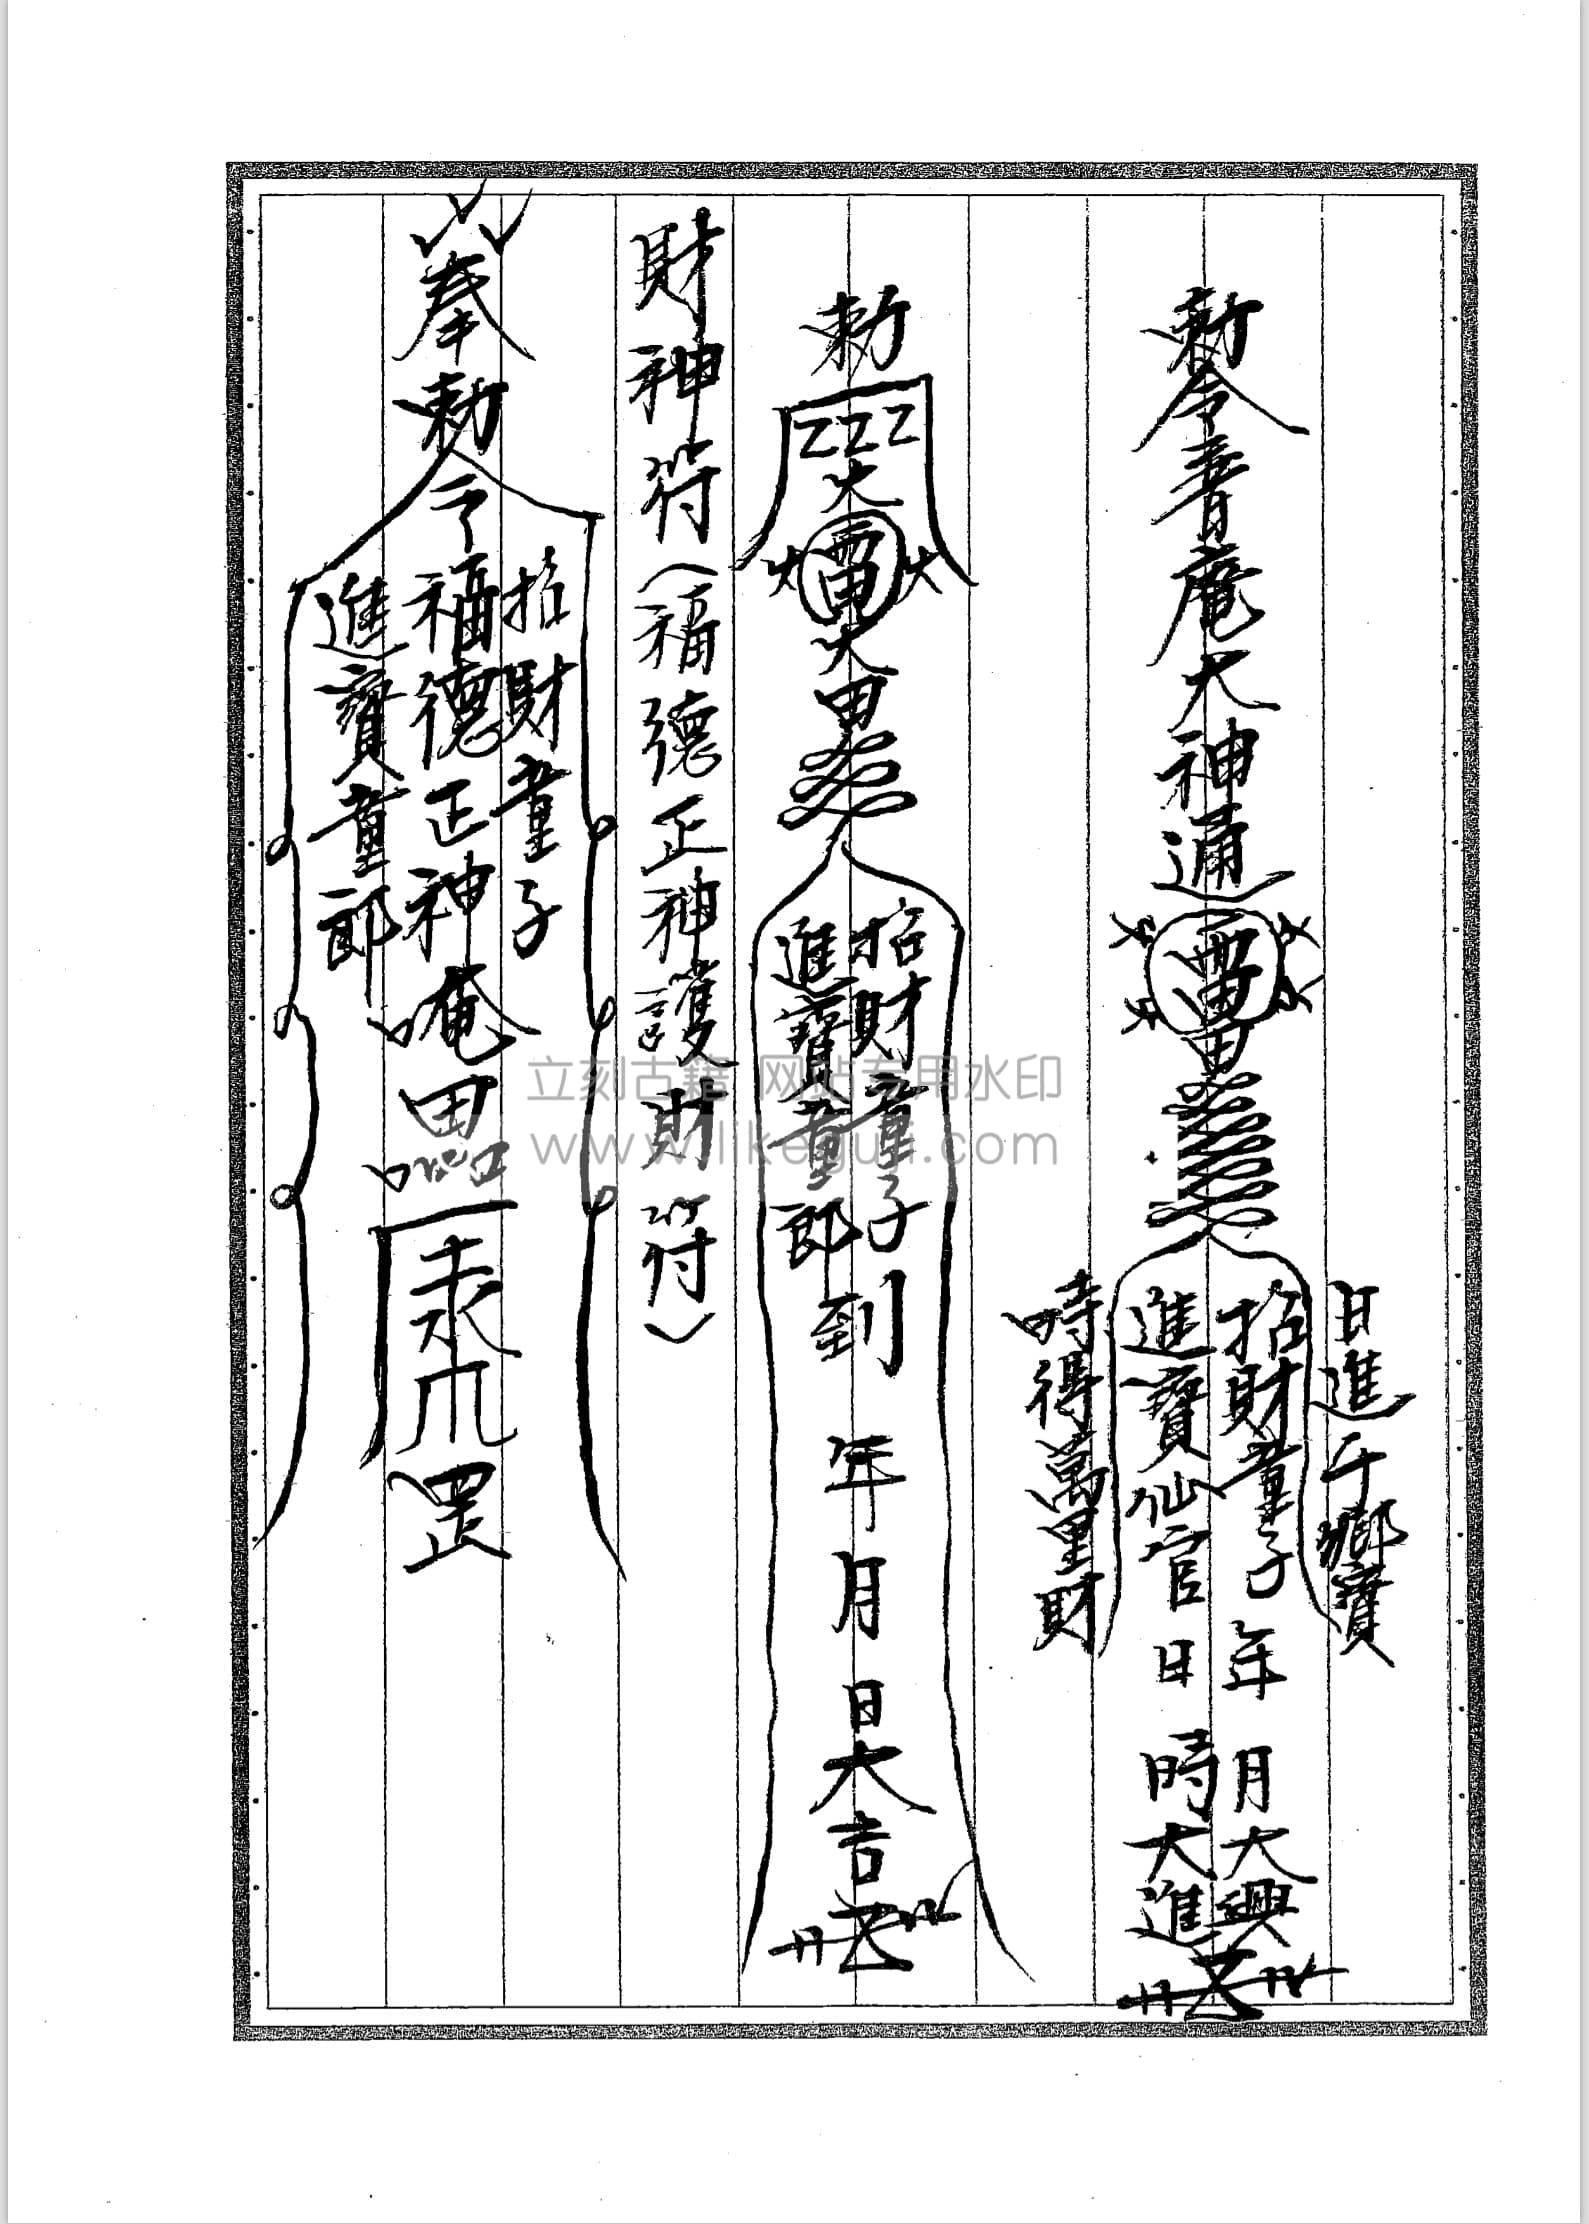 日進千鄉寶
勅令普庵大神通
雷
招財童子年月大興
進寶仙官日時大進
時得萬里財
勅
火
火雷火
火田
招財童子
進寶童郎
到年月日大吉
財神符(福德正神護財符)
奉勅令福德正神唵
招財童子
進寶童郎
罡
立刻古籍 网站专用水印
www.likeguji.com